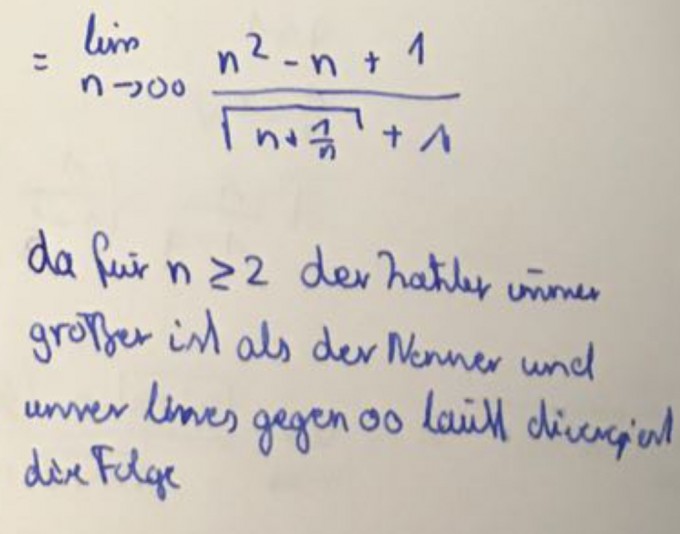 = lim n→∞ (n² - n + 1) / (√(n + 1/n) + 1)
da für n ≥ 2 der Zähler immer
größer ist als der Nenner und
unser Limes gegen ∞ läuft divergiert
die Folge